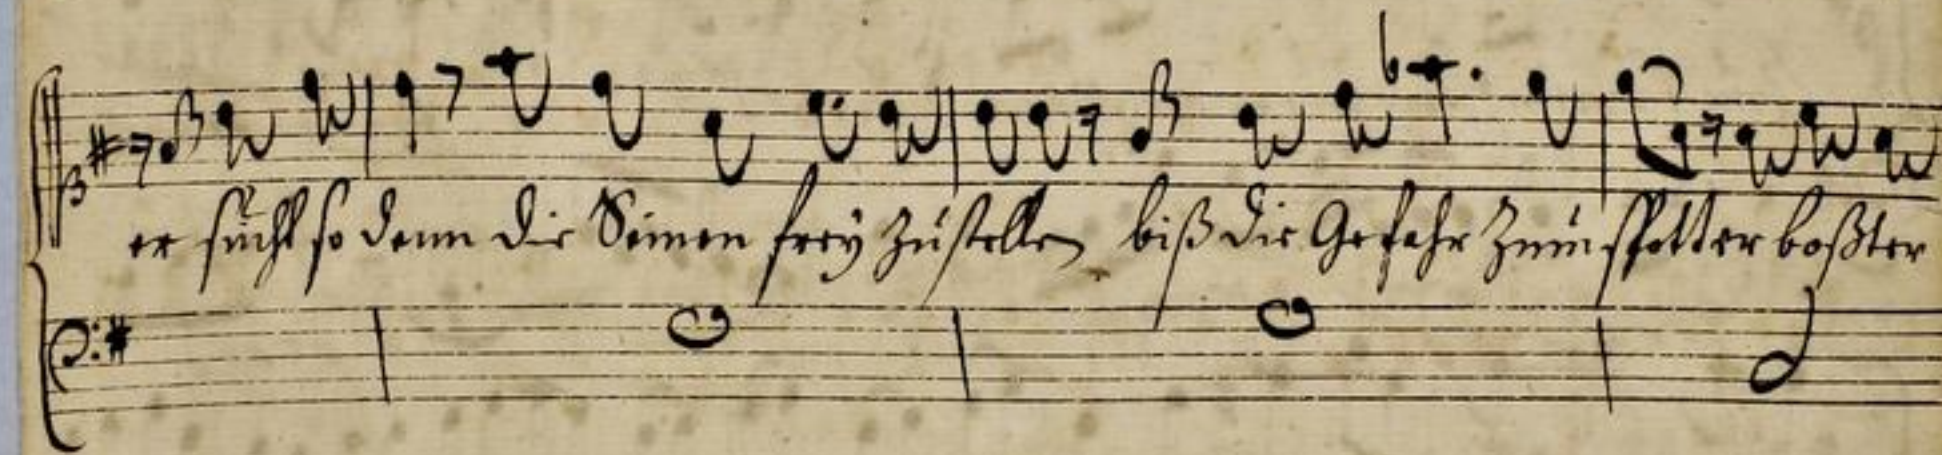 er sucht so denn die Seinen frey zu stellen biß die Gefahr zum spott erboßter